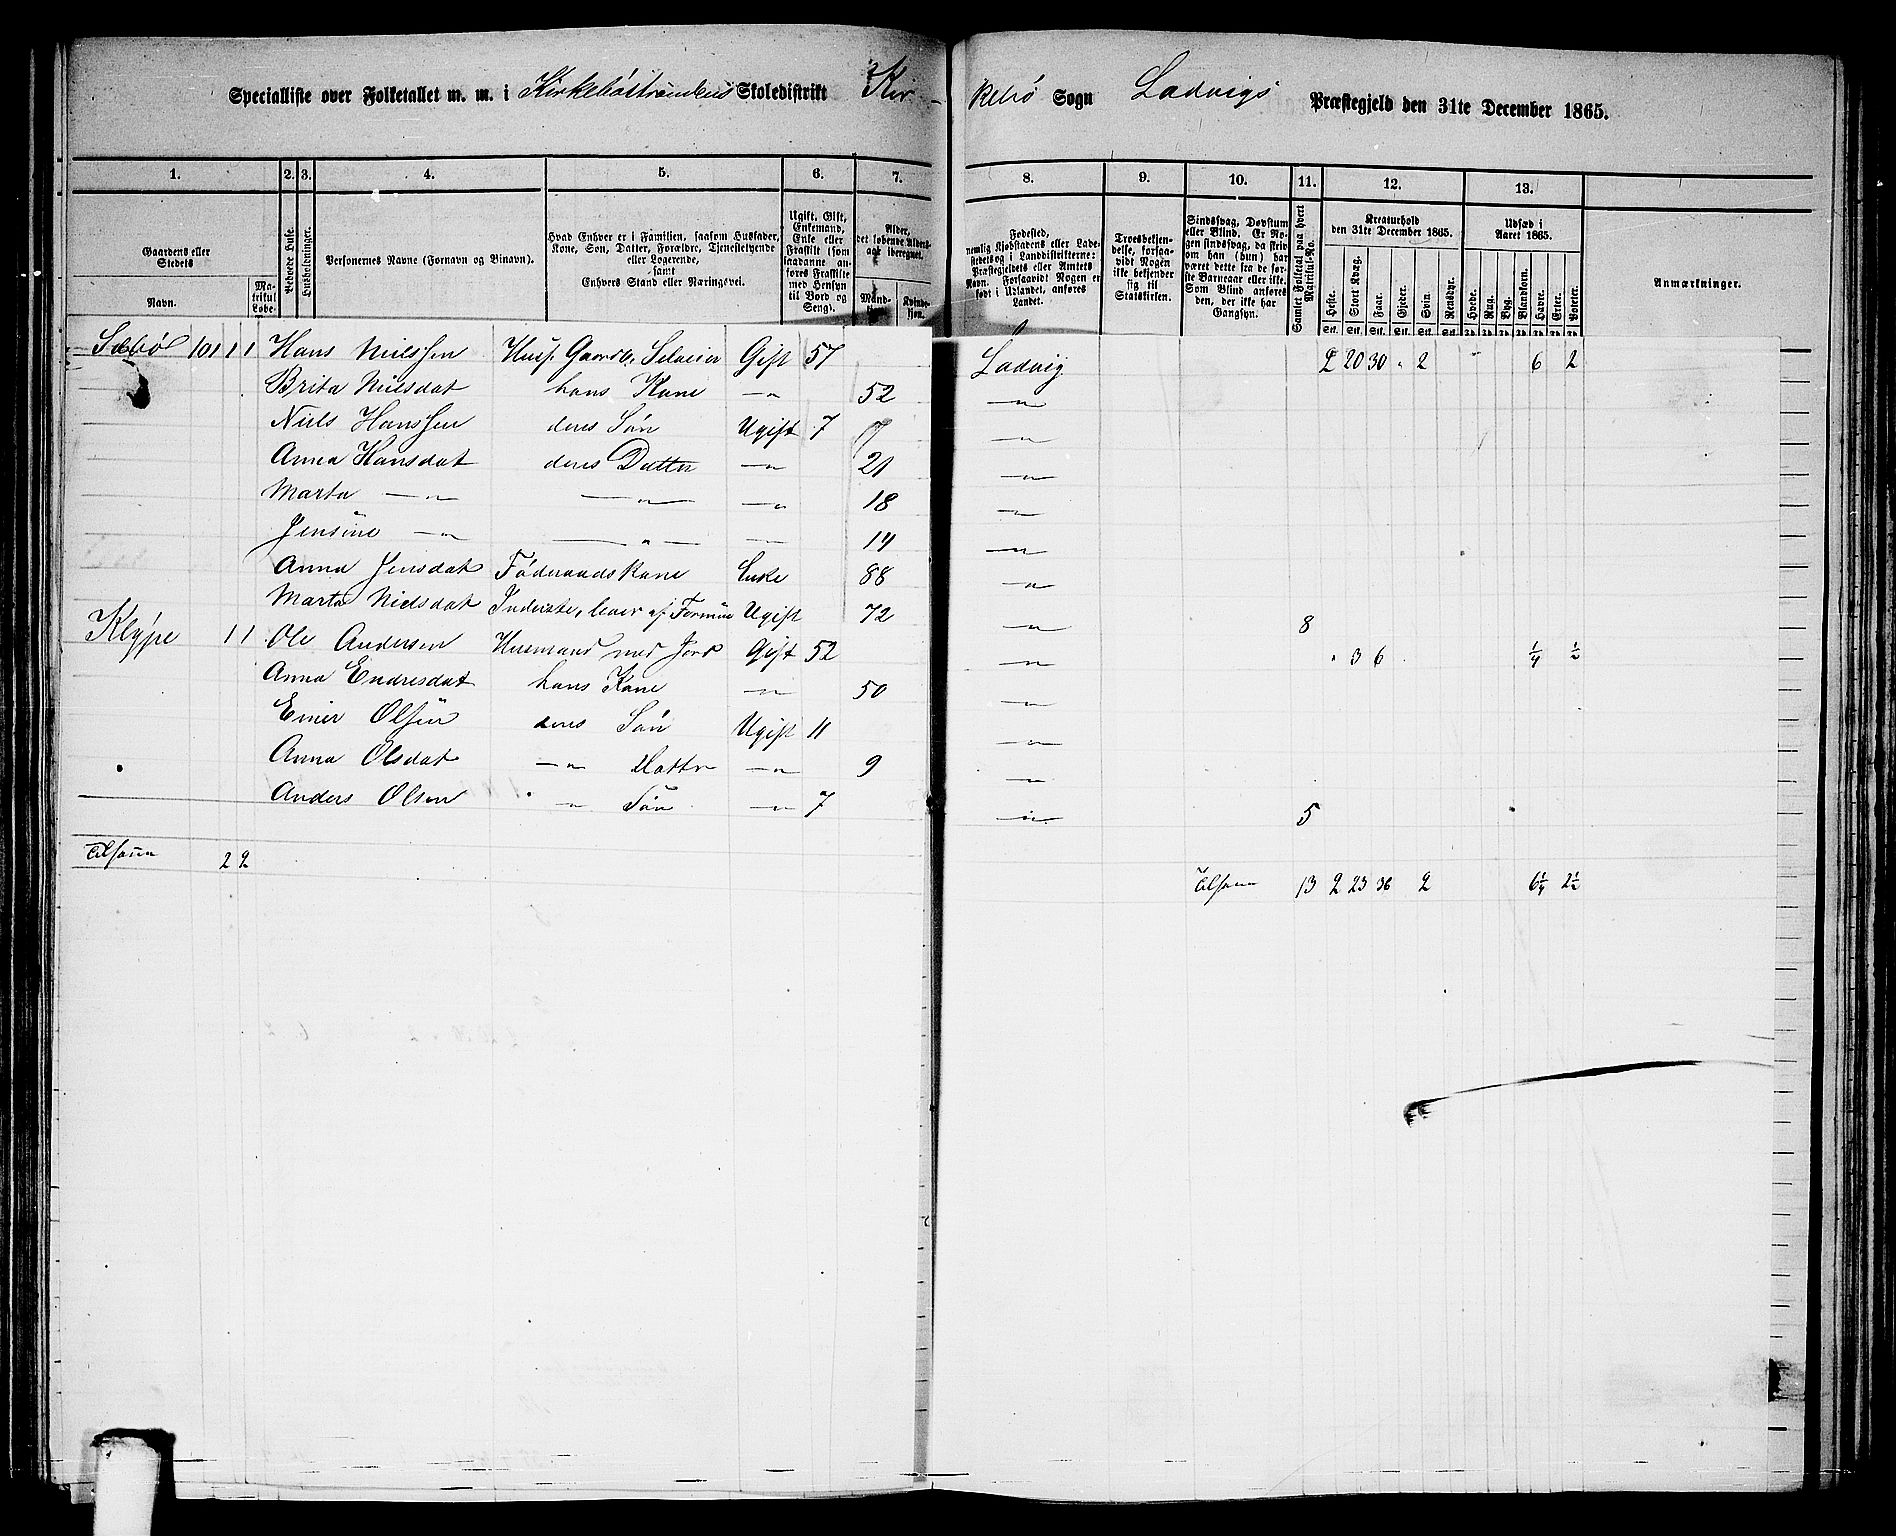 Specialliste over Folketallet m. m. i Kirkebøstrandens Skoledistrikt Kirkebø Sogn Ladvigs Præstegjeld den 31te December 1865.
1. 2. 3. 4. 5. 6. 7. 8. 9. 10. 11. 12. 13.
Gaardens eller Stedets
Navn.
Matrikul Løbe-
Beboede Huse.
Husholdninger.
Personernes Navne (Fornavn og Binavn).
Hvad Enhver er i Familien, saasom Husfader, Kone, Søn, Datter, Forældre, Tjenestetyende eller Logerende, samt Enhvers Stand eller Næringsvei.
Ugift, Gift, Enkemand, Enke eller Fraskilt (som saadanne anføres Fraskilte med Hensyn til Bord og Seng).
Alder, det løbende Aldersaar iberegnet.
Mandkjøn. Kvindekjøn.
Fødested, nemlig Kjøbstadens eller Ladestedets og i Landdistrikterne: Præstegjeldets eller Amtets Navn. Forsaavidt Nogen er født i Udlandet, anføres Landet.
Troesbekjendelse, forsaavidt Nogen ikke bekjender sig til Statskirken.
Sindssvag, Døvstum eller Blind. Er Nogen sindssvag, da skriv om han (hun) har været dette fra de første Barneaar eller ikke. Som Blind anføres den, der ikke har Gangsyn.
Samlet Folketal paa hvert Matrikul-No.
Kreaturhold den 31te December 1865.
Heste. Stort Kvæg. Faar. Gjeder. Svin. Rensdyr.
Udsæd i Aaret 1865.
Hvede. Rug. Byg. Blandkorn. Havre. Erter. Poteter.
Anmærkninger.
Sæbø 101 1 1 Hans Nielssen Husf. Gaardb. Selveier Gift 57 Ladvig 2 20 30 " 2 6 2
Brita Nielsdat hans Kone —"— 52 —"—
Niels Hanssen deres Søn Ugift 7 —"—
Anna Hansdat deres Datter —"— 21 —"—
Marta —"— —"— —"— 18 —"—
Jensine —"— —"— —"— 14 —"—
Anna Jensdat Føderaadskone Enke 88 —"—
Marta Nielsdat Inderste, lever af Formue Ugift 72 —"— 8
Klype 1 1 Ole Andersen Husmand med Jord Gift 52 —"— " 3 6 ¼ ½
Anna Endresdat hans Kone —"— 50 —"—
Einer Olsen deres Søn Ugift 11 —"—
Anna Olsdat —"— Datter —"— 9 —"—
Anders Olsen —"— Søn —"— 7 —"— 5
Tilsam 2 2 Tilsam 13 2 23 36 2 6¼ 2½